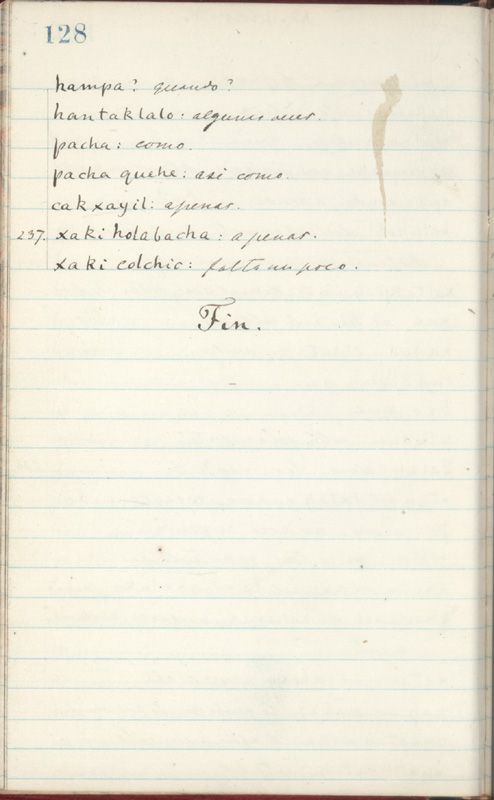 128
hampa? quando?
hantaklalo: algunas veces.
pacha: como.
pacha quehe: asi como.
cak xayil: apenas.
237. xaki holabacha: apenas.
xaki colchic: falta un poco.
Fin.